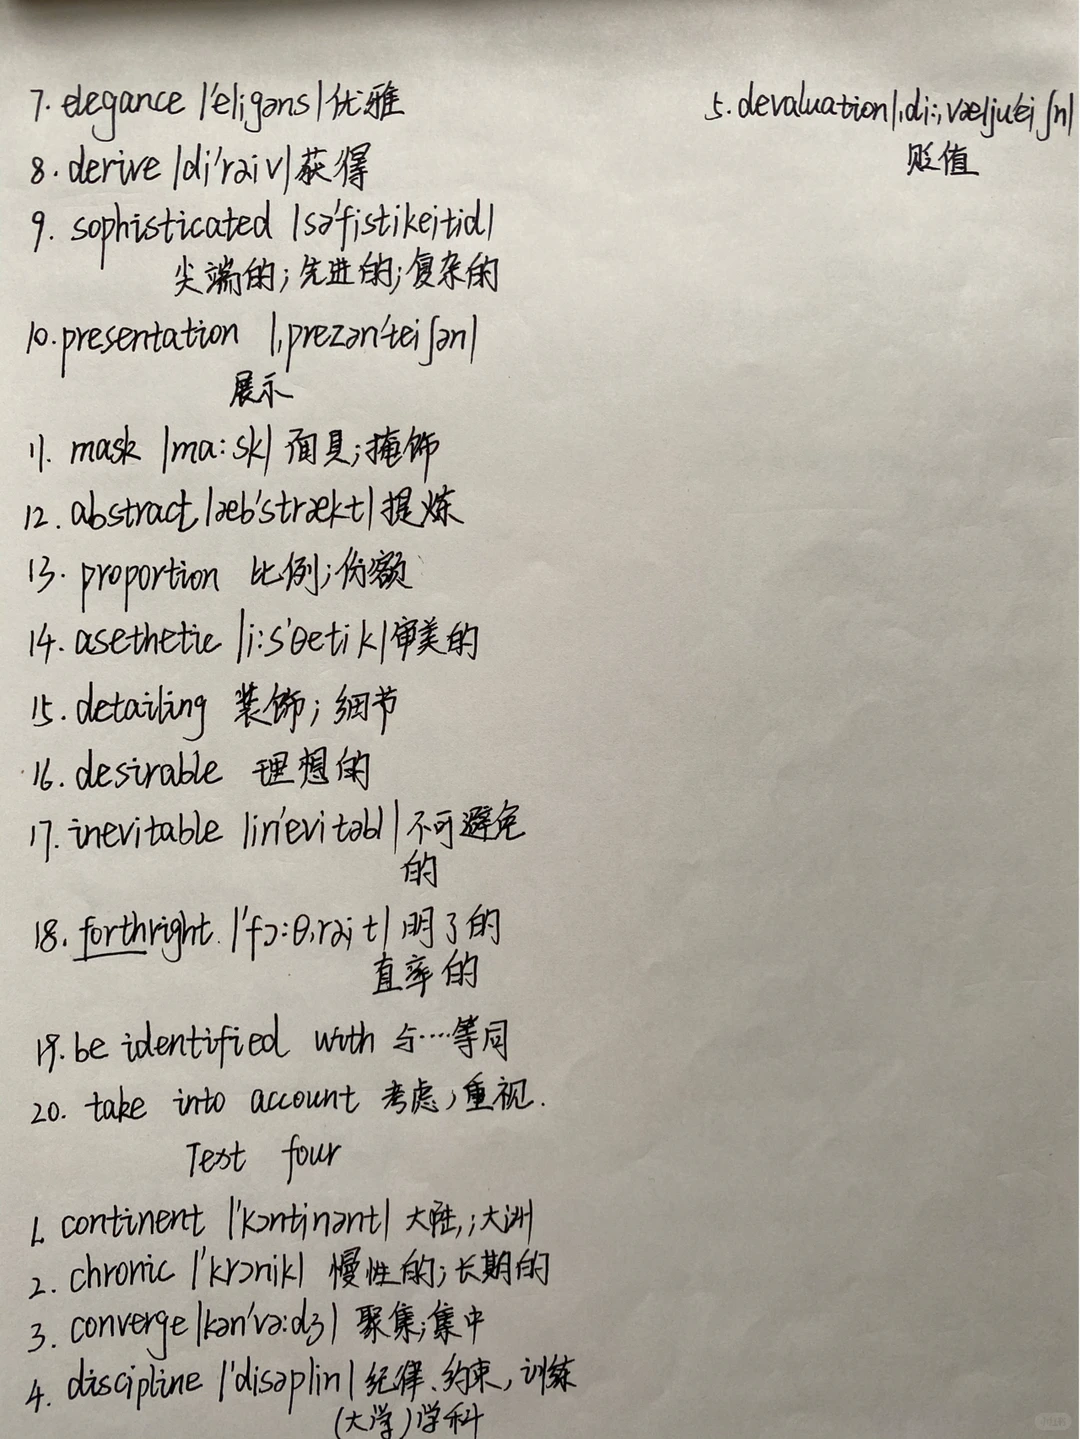 7. elegance |'eligəns| 优雅
8. derive |di'raiv| 获得
9. sophisticated |sə'fistikeitid|
尖端的；先进的；复杂的
10. presentation |,prezən'teiʃən|
展示
11. mask |ma:sk| 面具；掩饰
12. abstract |æb'strækt| 提炼
13. proportion 比例；份额
14. asethetic |i:s'θetik| 审美的
15. detailing 装饰；细节
16. desirable 理想的
17. inevitable |in'evitəbl| 不可避免
的
18. forthright |'fɔ:θ,rait| 明了的
直率的
19. be identified with 与……等同
20. take into account 考虑，重视.
Text four
1. continent |'kɔntinənt| 大陆；大洲
2. chronic |'krɔnik| 慢性的；长期的
3. converge |kən'və:dʒ| 聚集；集中
4. discipline |'disəplin| 纪律、约束，训练
(大学)学科
5. devaluation |,di:,vælju'eiʃn|
贬值
小红书